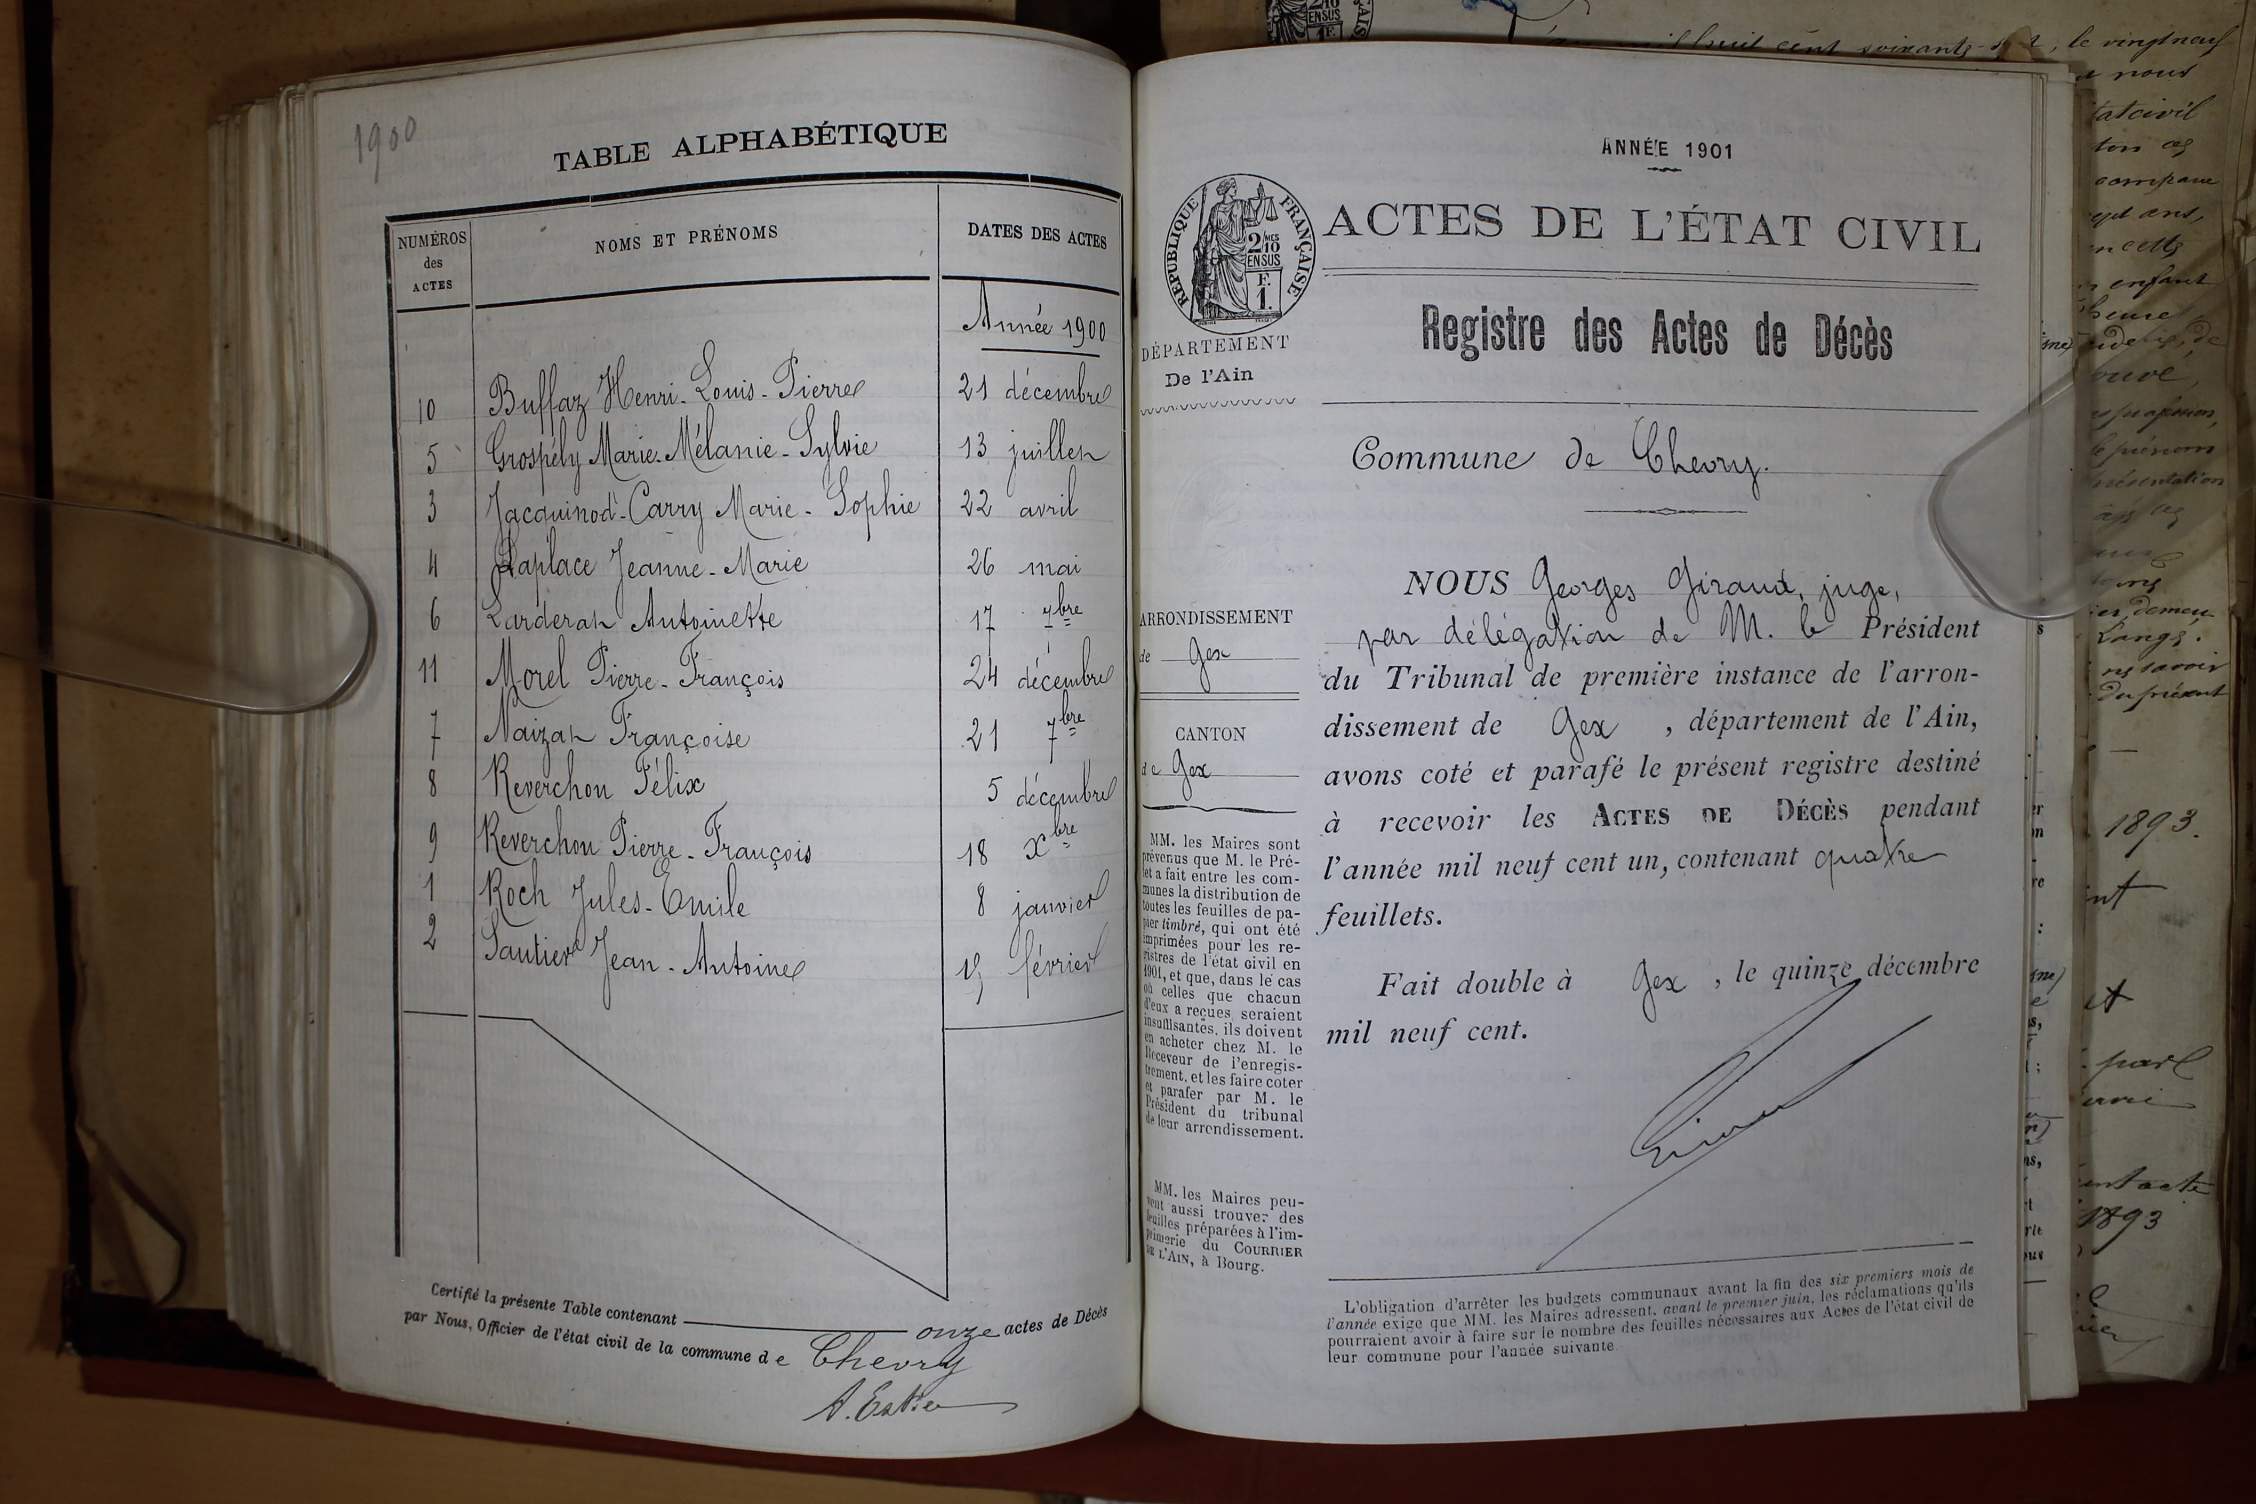 1900
TABLE ALPHABÉTIQUE
NUMÉROS
des
ACTES
NOMS ET PRÉNOMS
DATES DES ACTES
Année 1900
10 Buffaz Henri-Louis-Pierre 21 décembre
5 Grospély Marie-Mélanie-Sylvie 13 juillet
3 Jacquinod-Carry Marie-Sophie 22 avril
4 Laplace Jeanne-Marie 26 mai
6 Larderat Antoinette 17 7bre
11 Morel Pierre-François 24 décembre
7 Naizat Françoise 21 7bre
8 Reverchon Félix 5 décembre
9 Reverchon Pierre-François 18 Xbre
1 Roch Jules-Emile 8 janvier
2 Sautier Jean-Antoine février
Certifié la présente Table contenant onze actes de Décès
par Nous, Officier de l'état civil de la commune de Chevry
ANNÉE 1901
RÉPUBLIQUE FRANÇAISE
2/10 MES
EN SUS
F.
1.
ACTES DE L'ÉTAT CIVIL
Registre des Actes de Décès
DÉPARTEMENT
De l'Ain
Commune de Chevry.
ARRONDISSEMENT
de Gex
CANTON
de Gex
MM. les Maires sont
prévenus que M. le Pré-
fet a fait entre les com-
munes la distribution de
toutes les feuilles de pa-
pier timbré, qui ont été
imprimées pour les re-
gistres de l'état civil en
1901, et que, dans le cas
où celles que chacun
d'eux a reçues seraient
insuffisantes, ils doivent
en acheter chez M. le
Receveur de l'enregis-
trement, et les faire coter
et parafer par M. le
Président du tribunal
de leur arrondissement.
MM. les Maires peu-
vent aussi trouver des
feuilles préparées à l'im-
primerie du COURRIER
DE L'AIN, à Bourg.
NOUS Georges Giraud, juge,
par délégation de M. le Président
du Tribunal de première instance de l'arron-
dissement de Gex, département de l'Ain,
avons coté et parafé le présent registre destiné
à recevoir les ACTES DE DÉCÈS pendant
l'année mil neuf cent un, contenant quatre
feuillets.
Fait double à Gex, le quinze décembre
mil neuf cent.
L'obligation d'arrêter les budgets communaux avant la fin des six premiers mois de
l'année exige que MM. les Maires adressent, avant le premier juin, les réclamations qu'ils
pourraient avoir à faire sur le nombre des feuilles nécessaires aux Actes de l'état civil de
leur commune pour l'année suivante.
le vingt neuf
nous
1893.
1893